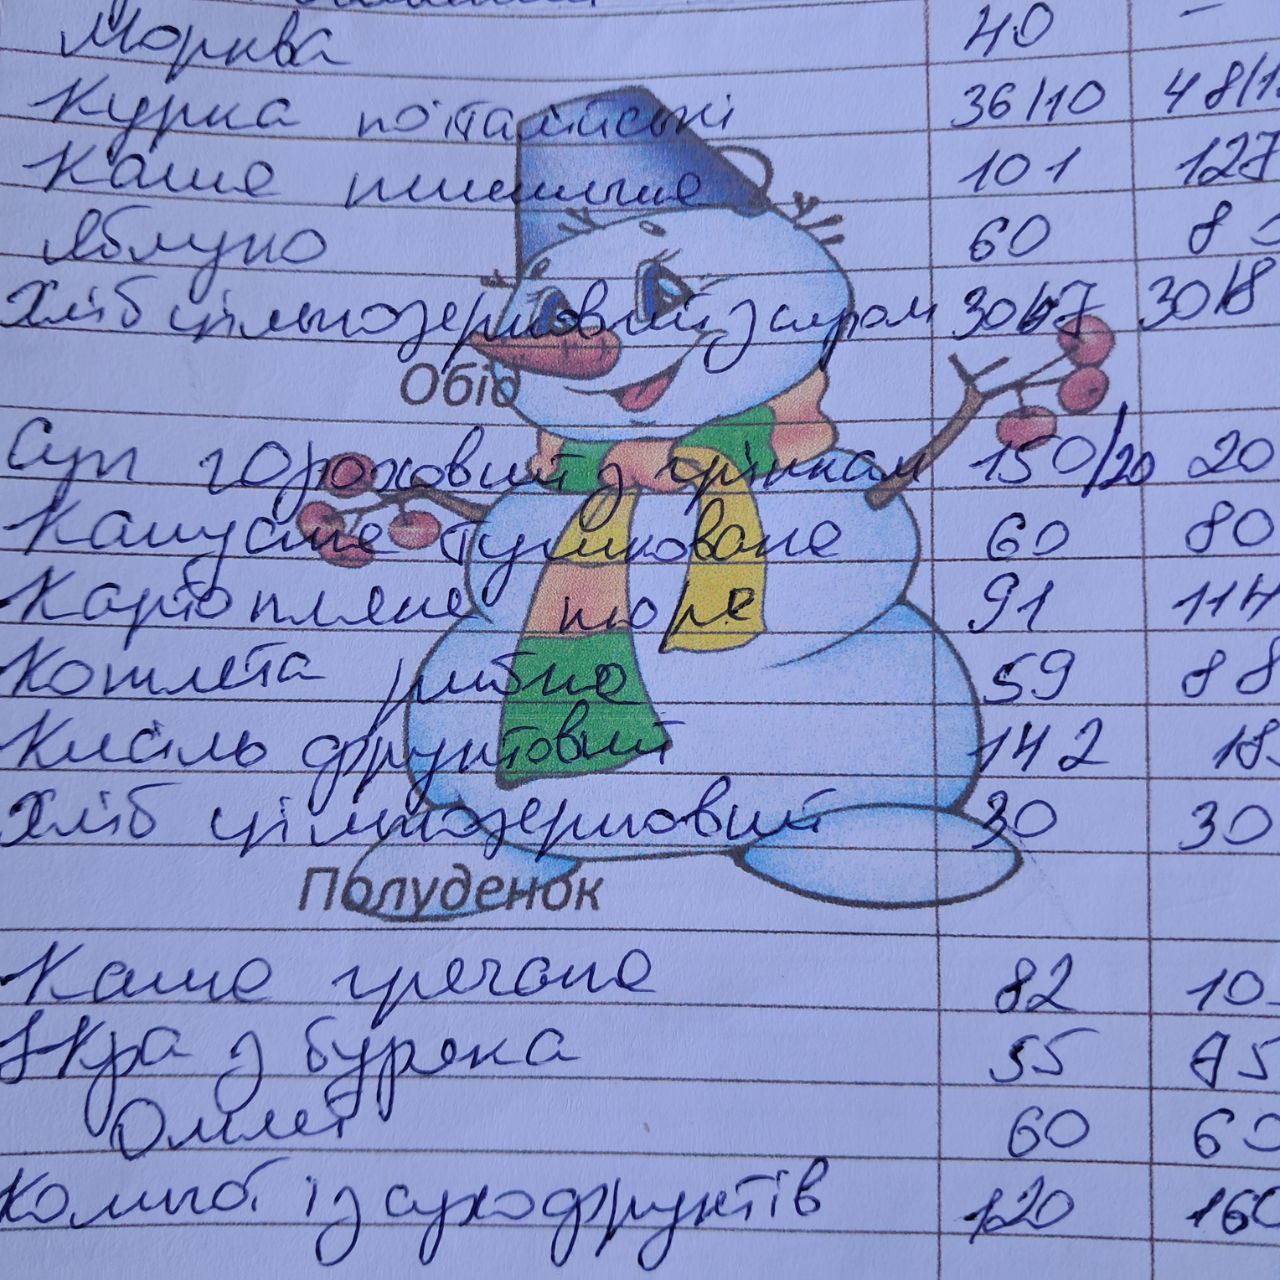 Морква 40 -
Курка по італійські 36/10 48/1
Каша пшенична 101 127
Яблуко 60 8
Хліб цільнозерновий з сиром 30/7 30/8
Обід
Суп гороховий з грінкам 150/20 20
Капуста тушкована 60 80
Картопляне пюре 91 114
Котлета рибна 59 88
Кисіль фруктовий 142 18
Хліб цільнозерновий 30 30
Полуденок
Каша гречана 82 10
Ікра з буряка 55 75
Омлет 60 60
Компот із сухофруктів 120 160